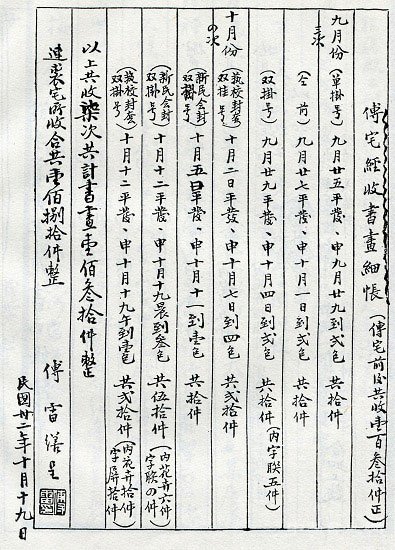 傅宅經收書畫細帳(傅宅前後共收壹百叁拾件正)
九月份 三次 (單掛号) 九月廿五平發、申九月廿九到弍包 共弍拾件
(仝前) 九月廿七平發、申十月一日到弍包 共弍拾件
(双掛号) 九月廿九平發、申十月四日到弍包 共弍拾件 (内字联五件)
十月份 の次 (藝校封蓋双挂号) 十月二日平發、申十月七日到四包 共弍拾件
(新民会封双掛号) 十月五日平發、申十月十一到壹包 共拾件
(新民会封双掛号) 十月十二平發、申十月十九晨到叁包 共伍拾件 (内花卉六件字联の件)
(藝校封蓋双掛号) 十月十二平發、申十月十九午到壹包 共弍拾件 (内花卉拾件字屏拾件)
以上共收柒次共計書畫壹佰叁拾件整
連裘宅所收合共壹佰捌拾件整
傅雷繕呈
民國卅二年十月十九日